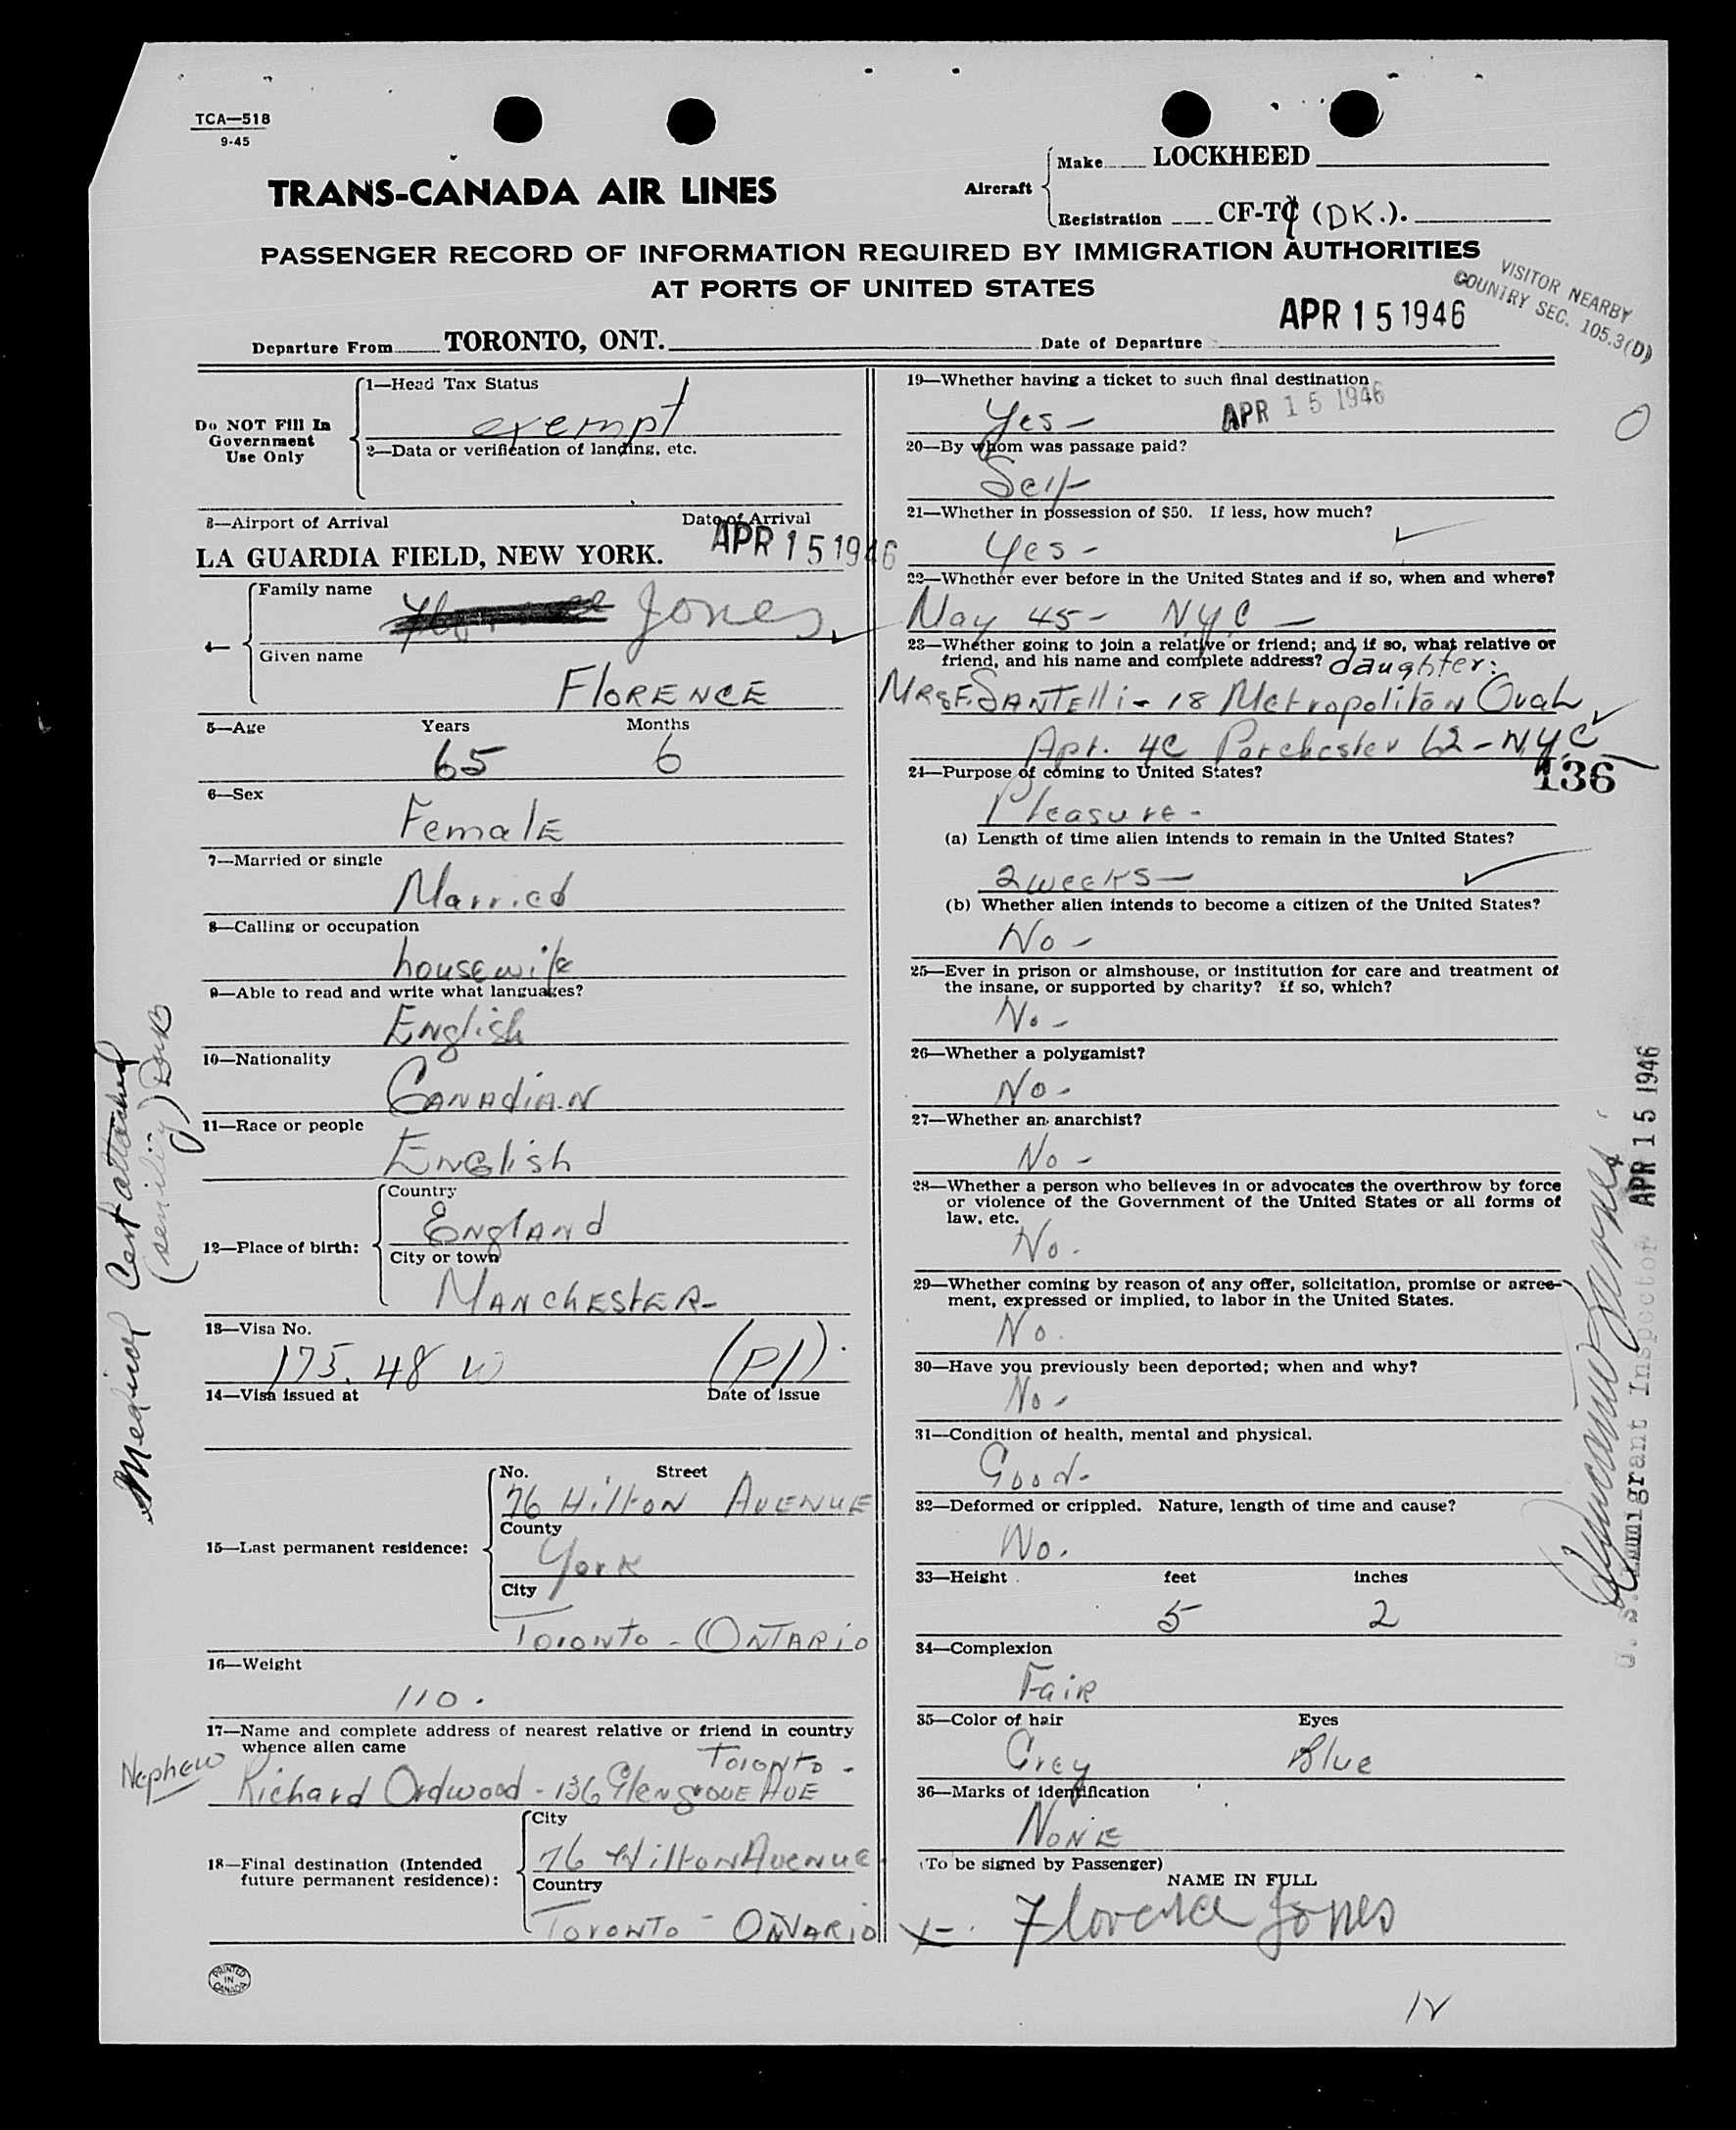 TCA—518
9-45
TRANS-CANADA AIR LINES
Aircraft
Make LOCKHEED
Registration CF-TC (DK.).
PASSENGER RECORD OF INFORMATION REQUIRED BY IMMIGRATION AUTHORITIES
AT PORTS OF UNITED STATES
VISITOR NEARBY
COUNTRY SEC. 105.3(D)
Departure From TORONTO, ONT.
Date of Departure APR 15 1946
Do NOT Fill In
Government
Use Only
1—Head Tax Status
exempt
2—Data or verification of landing, etc.
3—Airport of Arrival Date of Arrival
LA GUARDIA FIELD, NEW YORK. APR 15 1946
4—
Family name
Jones
Given name
FLORENCE
5—Age Years Months
65 6
6—Sex
Female
7—Married or single
Married
8—Calling or occupation
housewife
9—Able to read and write what languages?
English
10—Nationality
CANADIAN
11—Race or people
English
12—Place of birth:
Country
ENGLAND
City or town
MANCHESTER-
13—Visa No.
175.48 W (P1).
14—Visa issued at Date of issue
15—Last permanent residence:
No. Street
76 Hilton AVENUE
County
York
City
Toronto - ONTARIO
16—Weight
110.
17—Name and complete address of nearest relative or friend in country
whence alien came
Toronto -
Nephew Richard Ordwood - 136 Glengrove AVE
18—Final destination (Intended
future permanent residence):
City
76 Hilton Avenue
Country
Toronto - ONTARIO
PRINTED
IN
CANADA
Medical Cert attached
(senility)
19—Whether having a ticket to such final destination
Yes - APR 15 1946
20—By whom was passage paid?
Self
21—Whether in possession of $50. If less, how much?
Yes -
22—Whether ever before in the United States and if so, when and where?
May 45 - NYC -
23—Whether going to join a relative or friend; and if so, what relative or
friend, and his name and complete address? daughter:
MRS F. SANTElli - 18 Metropolitan Oval
Apt. 4C Parchester 62 - N.Y.C
136
24—Purpose of coming to United States?
Pleasure -
(a) Length of time alien intends to remain in the United States?
2 weeks -
(b) Whether alien intends to become a citizen of the United States?
No -
25—Ever in prison or almshouse, or institution for care and treatment of
the insane, or supported by charity? If so, which?
No -
26—Whether a polygamist?
No -
27—Whether an anarchist?
No -
28—Whether a person who believes in or advocates the overthrow by force
or violence of the Government of the United States or all forms of
law, etc.
No.
29—Whether coming by reason of any offer, solicitation, promise or agree-
ment, expressed or implied, to labor in the United States.
No.
30—Have you previously been deported; when and why?
No -
31—Condition of health, mental and physical.
Good -
32—Deformed or crippled. Nature, length of time and cause?
No.
33—Height feet inches
5 2
34—Complexion
Fair
35—Color of hair Eyes
Grey Blue
36—Marks of identification
None
(To be signed by Passenger)
NAME IN FULL
X - Florence Jones
U. S. Immigrant Inspector APR 15 1946